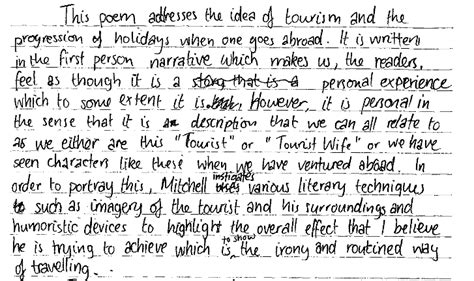 This poem addresses the idea of tourism and the
progression of holidays when one goes abroad. It is written
in the first person narrative which makes us, the readers,
feel as though it is a story that is a personal experience
which to some extent it is. However, it is personal in
the sense that it is a description that we can all relate to
as we either are this "Tourist" or "Tourist Wife" or we have
seen characters like these when we have ventured abroad. In
order to portray this, Mitchell uses instigates various literary techniques
to such as imagery of the tourist and his surroundings and
humoristic devices to highlight the overall effect that I believe
he is trying to achieve which is to show the irony and routined way
of travelling.